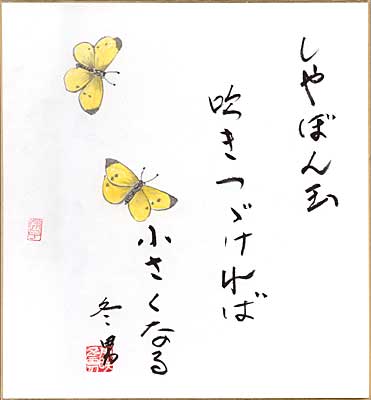 しやぼん玉
吹きつゞければ
小さくなる
冬男